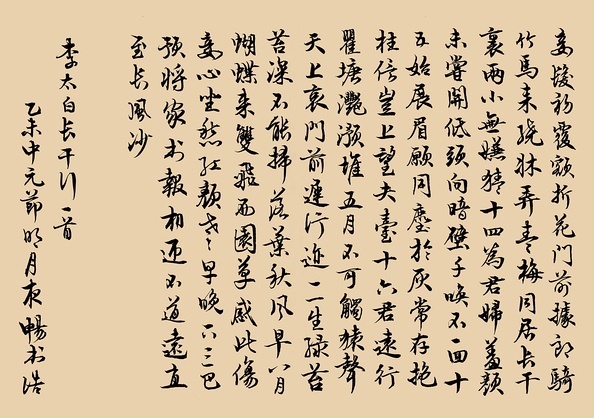 妾髮初覆額折花門前據郎騎
竹馬来繞牀弄青梅同居長干
裏兩小無嫌猜十四為君婦羞顏
未嘗開低頭向暗壁千喚不一回十
五始展眉願同塵於灰常存抱
柱信豈上望夫臺十六君遠行
瞿塘灔澦堆五月不可觸猿聲
天上哀門前遲行迹一一生綠苔
苔深不能掃落葉秋風早八月
蝴蝶来雙飛西園草感此傷
妾心坐愁紅顏老早晚下三巴
預將家書報相迎不道遠直
至長風沙
李太白長干行一首
乙未中元節明月夜暢書浩